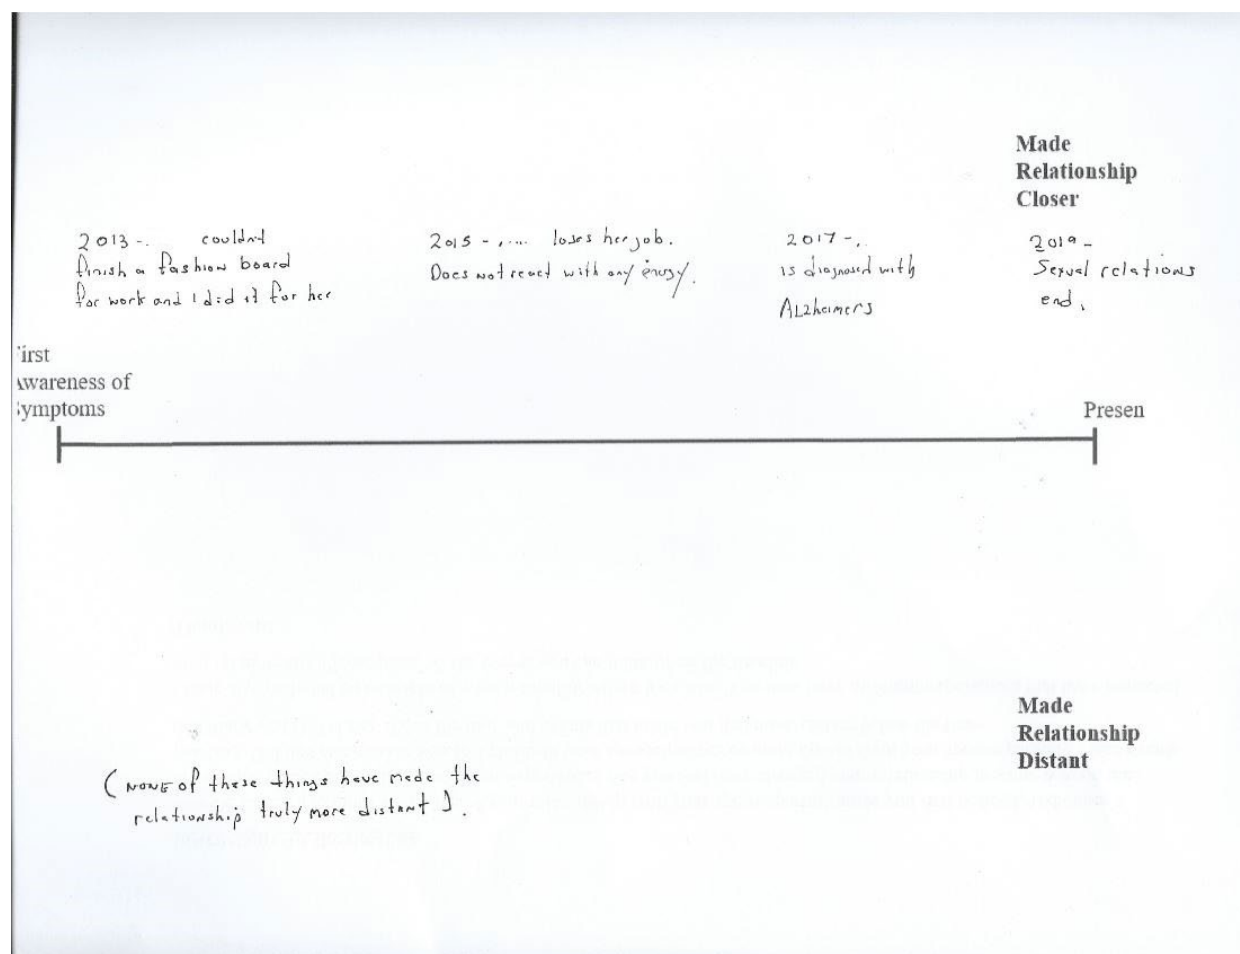 Made
Relationship
Closer
2013 -. couldnt
finish a fashion board
for work and I did it for her
2015 - ,.... loses her job.
Does not react with any energy.
2017 -,.
is diagnosed with
ALzheimers
2019 -
Sexual relations
end.
irst
wareness of
ymptoms
Presen
Made
Relationship
Distant
(NONE of these things have made the
relationship truly more distant).